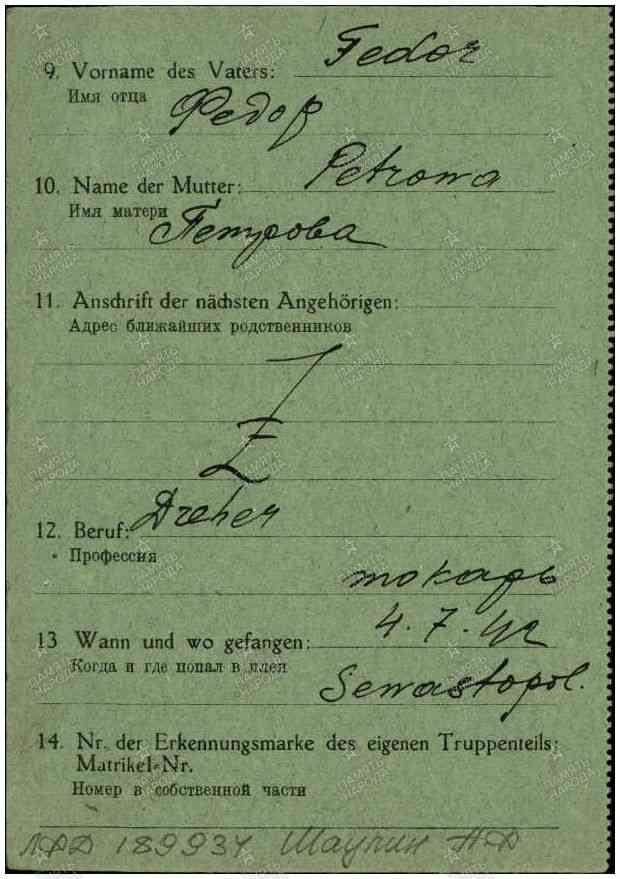 9. Vorname des Vaters: Fedor
Имя отца Федор
10. Name der Mutter: Petrowa
Имя матери Петрова
11. Anschrift der nächsten Angehörigen:
Адрес ближайших родственников
12. Beruf: Dreher
Профессия
токарь
13 Wann und wo gefangen: 4.7.42
Когда и где попал в плен
Sewastopol.
14. Nr. der Erkennungsmarke des eigenen Truppenteils:
Matrikel-Nr.
Номер в собственной части
189934